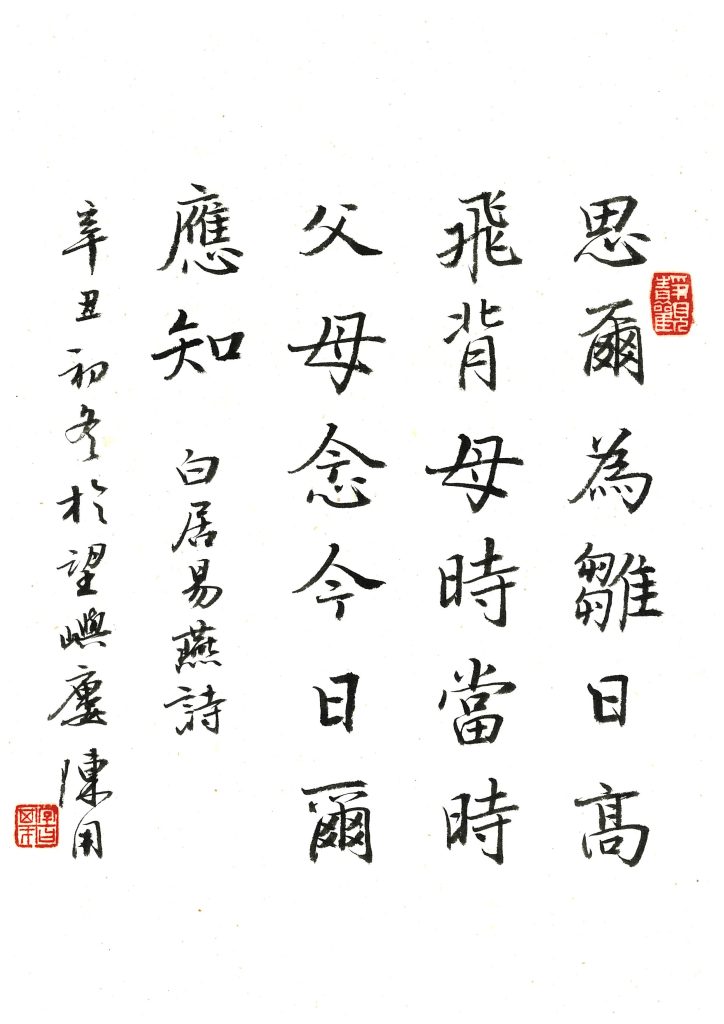 思爾為雛日高
飛背母時當時
父母念今日爾
應知 白居易燕詩
辛丑初冬於望嶼廔陳用
靜觀